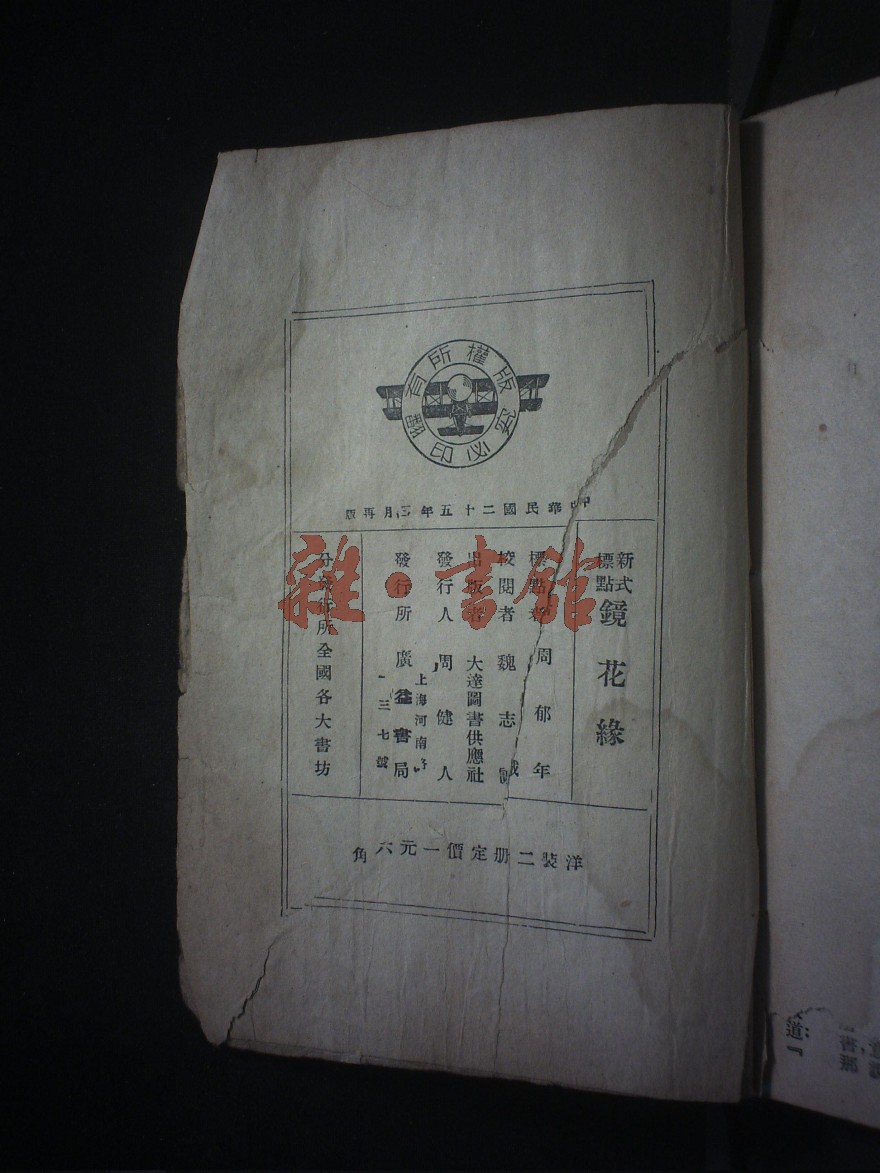 版權所有
翻印必究
中華民國二十五年三月再版
新式標點
鏡花緣
標點者 周郁年
校閱者 魏志
出版者 大達圖書供應社
發行人 周健人
上海河南路
一三七號
發行所 廣益書局
分發行所全國各大書坊
洋裝二册定價一元六角
雜·書館
道：
『